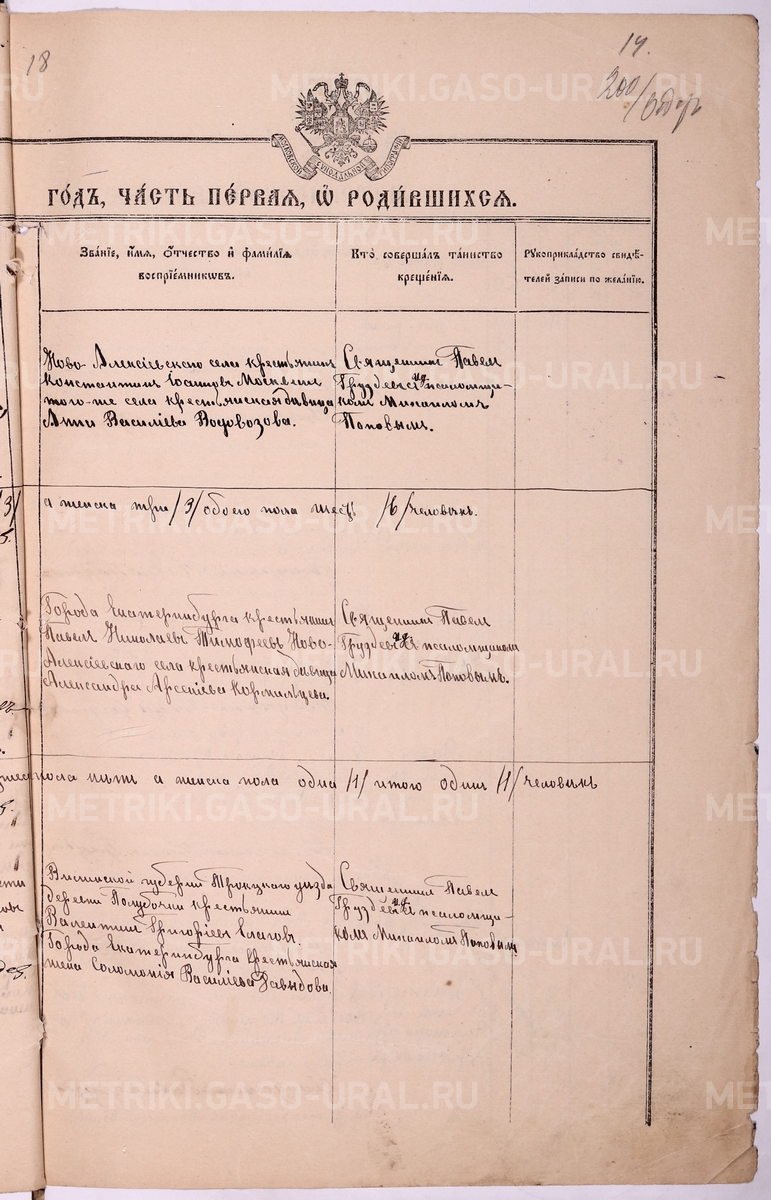 18
19.
200/
МОСКОВСКОЙ СѴНОДАЛЬНОЙ ТИПОГРАФІИ
ГО́ДЪ, ЧА́СТЬ ПЕ́РВАЯ, Ѡ҆ РОДИ́ВШИХСЯ.
Зва́нїе, и҆́мя, ѻ҆́тчество и҆ фами́лїя
воспрїе́мникѡвъ.
Кто̀ соверша́лъ та́инство
креще́нїя.
Рꙋкоприкла́дство свидѣ́-
телей за́писи по жела́нїю.
Ново-Алексіевскаго села крестьянин
Константинъ Іоаннов Москвин
того-же села крестьянская девица
Анна Васильева Водовозова.
Священник Павел
Груздев с и.д. псаломщи-
ком Михаиломъ
Поповымъ.
/3/
а женска три /3/ обоего пола шесть /6/ человѣкъ.
Города Екатеринбурга крестьянин
Павелъ Николаевъ Тимофеевъ Ново-
Алексіевскаго села крестьянская девица
Александра Арсеніева Кормильцева.
Священник Павел
Груздев с и.д. псаломщиком
Михаиломъ Поповымъ.
пола нѣтъ а женска пола одна /1/ итого один /1/ человѣкъ
Виленской губерніи Трокскаго уѣзда
деревни крестьянин
Валентин Григоріев
Города Екатеринбурга крестьянская
жена Соломонія Васильева Давыдова.
Священник Павел
Груздев с и.д. псаломщи-
комъ Михаиломъ Поповымъ
METRIKI.GASO-URAL.RU